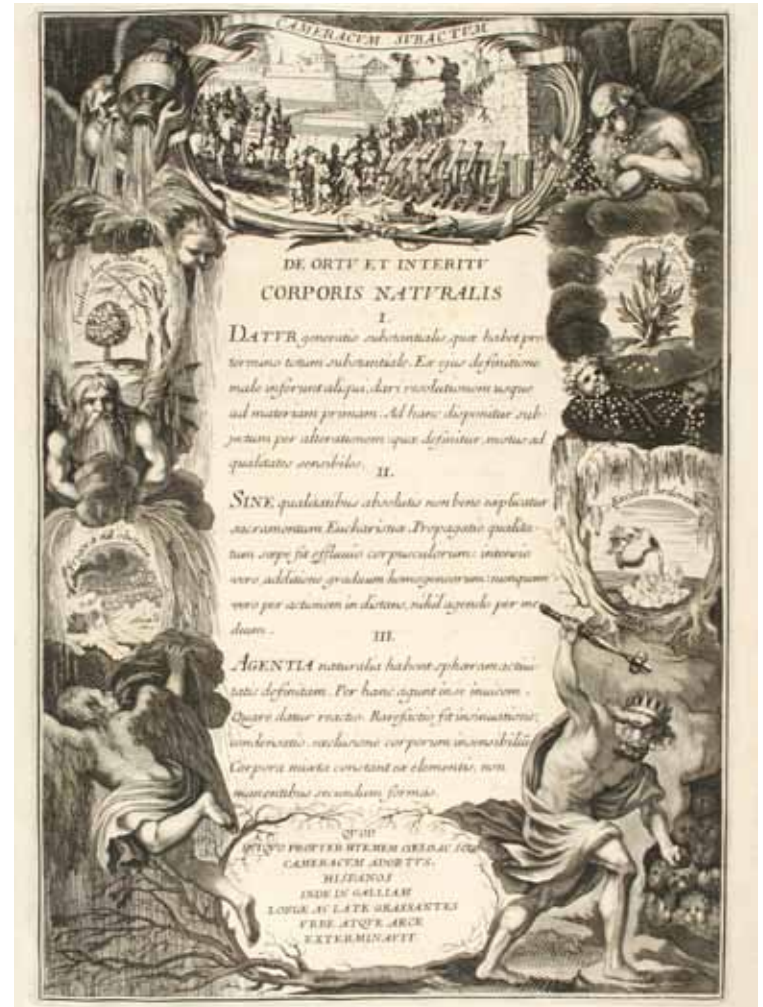 CAMERACVM SUBACTUM
DE ORTV ET INTERITV
CORPORIS NATVRALIS
I.
DATVR generatio substantialis, quæ habet pro
termino totum substantiale. Ex ejus definitione
male inferunt aliqui, dari resolutionem usque
ad materiam primam. Ad hanc disponitur sub-
jectum per alterationem quæ definitur, motus ad
qualitates sensibiles.
II.
SINE qualitatibus absolutis non bene explicatur
sacramentum Eucharistiæ. Propagatio qualita-
tum sæpe fit effluvio corpusculorum: intensio
vero additione graduum homogeneorum: nunquam
vero per actionem in distans, nihil agendo per me
dium.
III.
AGENTIA naturalia habent sphæram activi-
tatis definitam. Per hanc agunt in se invicem.
Quare datur reactio. Rarefactio fit insinuatione,
condensatio exclusione corporum insensibiliũ
Corpora mixta constant ex elementis, non
manentibus secundum formas.
QUOD
PROPTER HIEMEM
CAMERACVM ADORTVS,
HISPANOS
INDE IN GALLIAM
LONGE AC LATE GRASSANTES
VRBE ATQVE ARCE
EXTERMINAVIT